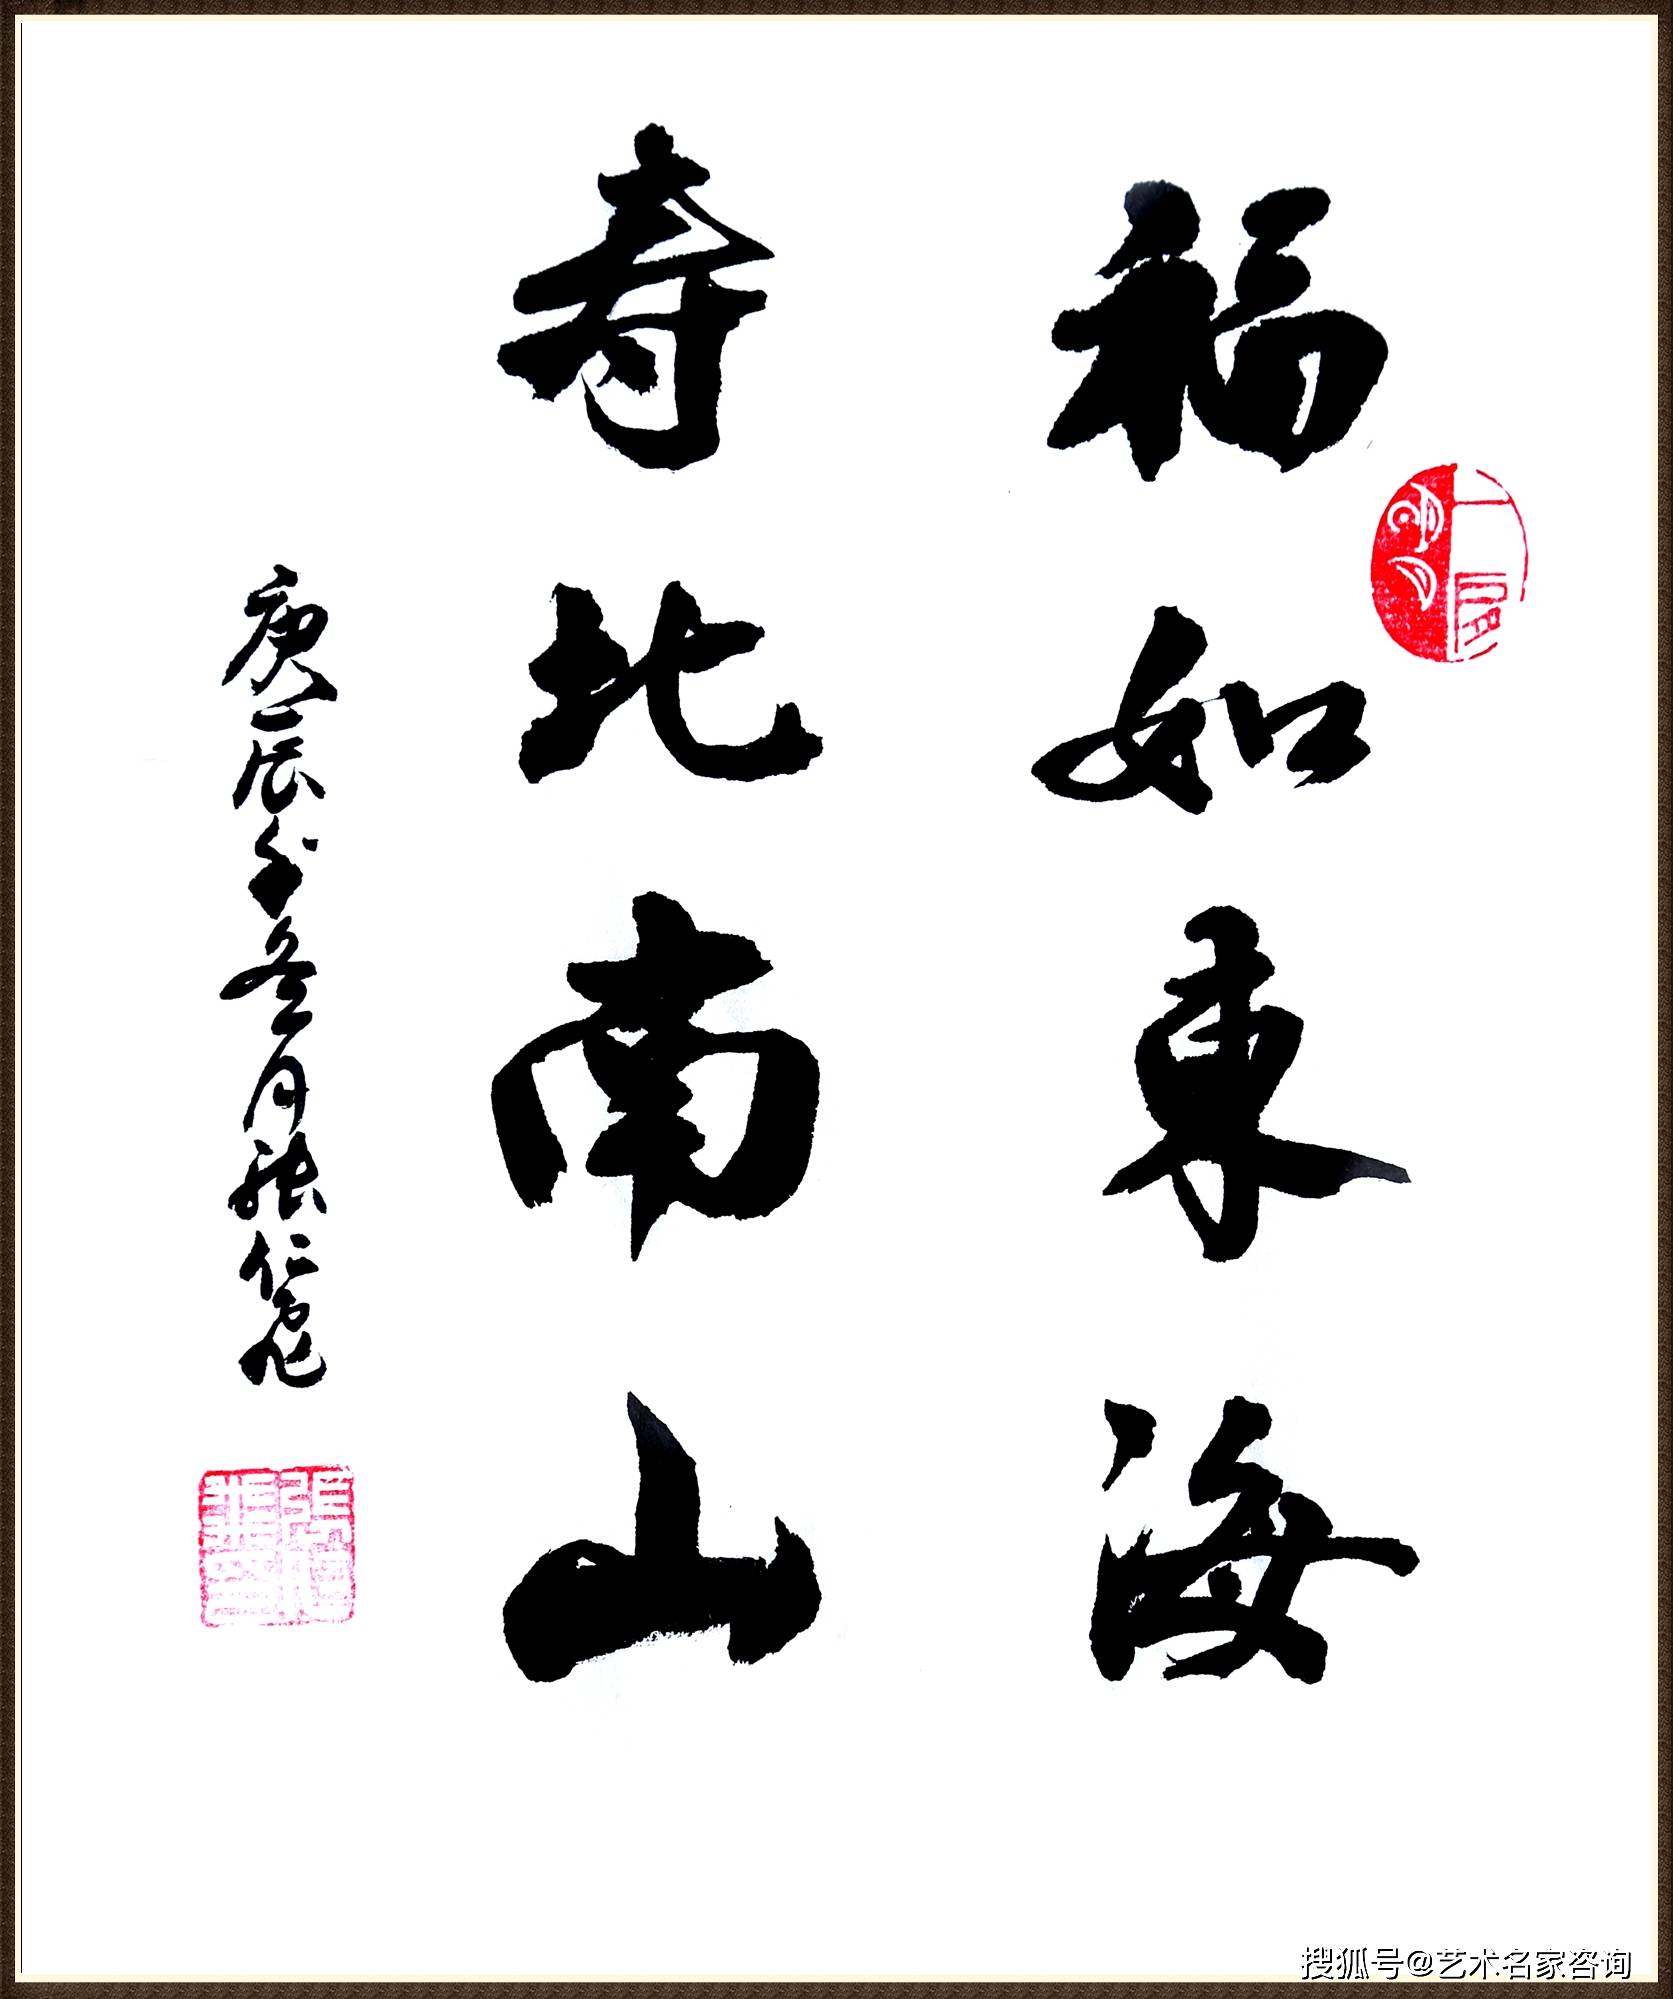 福如東海
寿比南山
庚辰年冬月张仁
搜狐号@艺术名家咨询